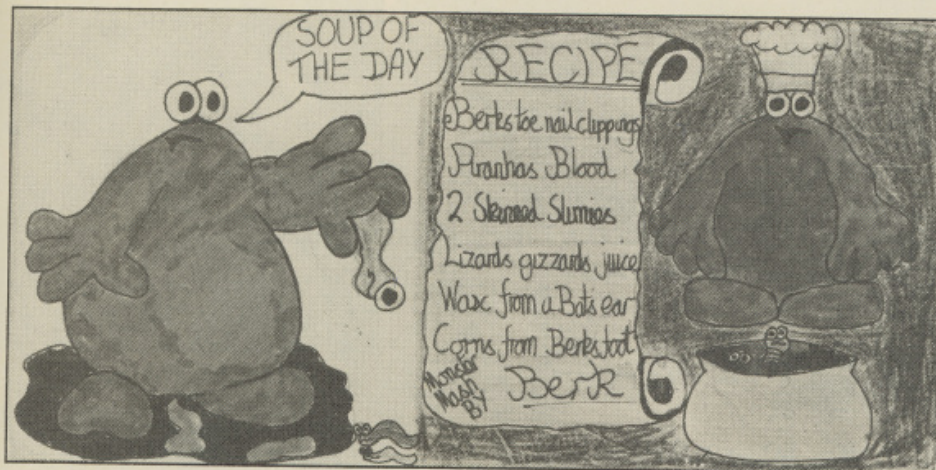 SOUP OF
THE DAY
RECIPE
Berks toe nail clippings
Piranhas Blood
2 Skinned Slumies
Lizards gizzards juice
Wax from a Bats ear
Corns from Berks foot
Monster
Mash
By
Berk